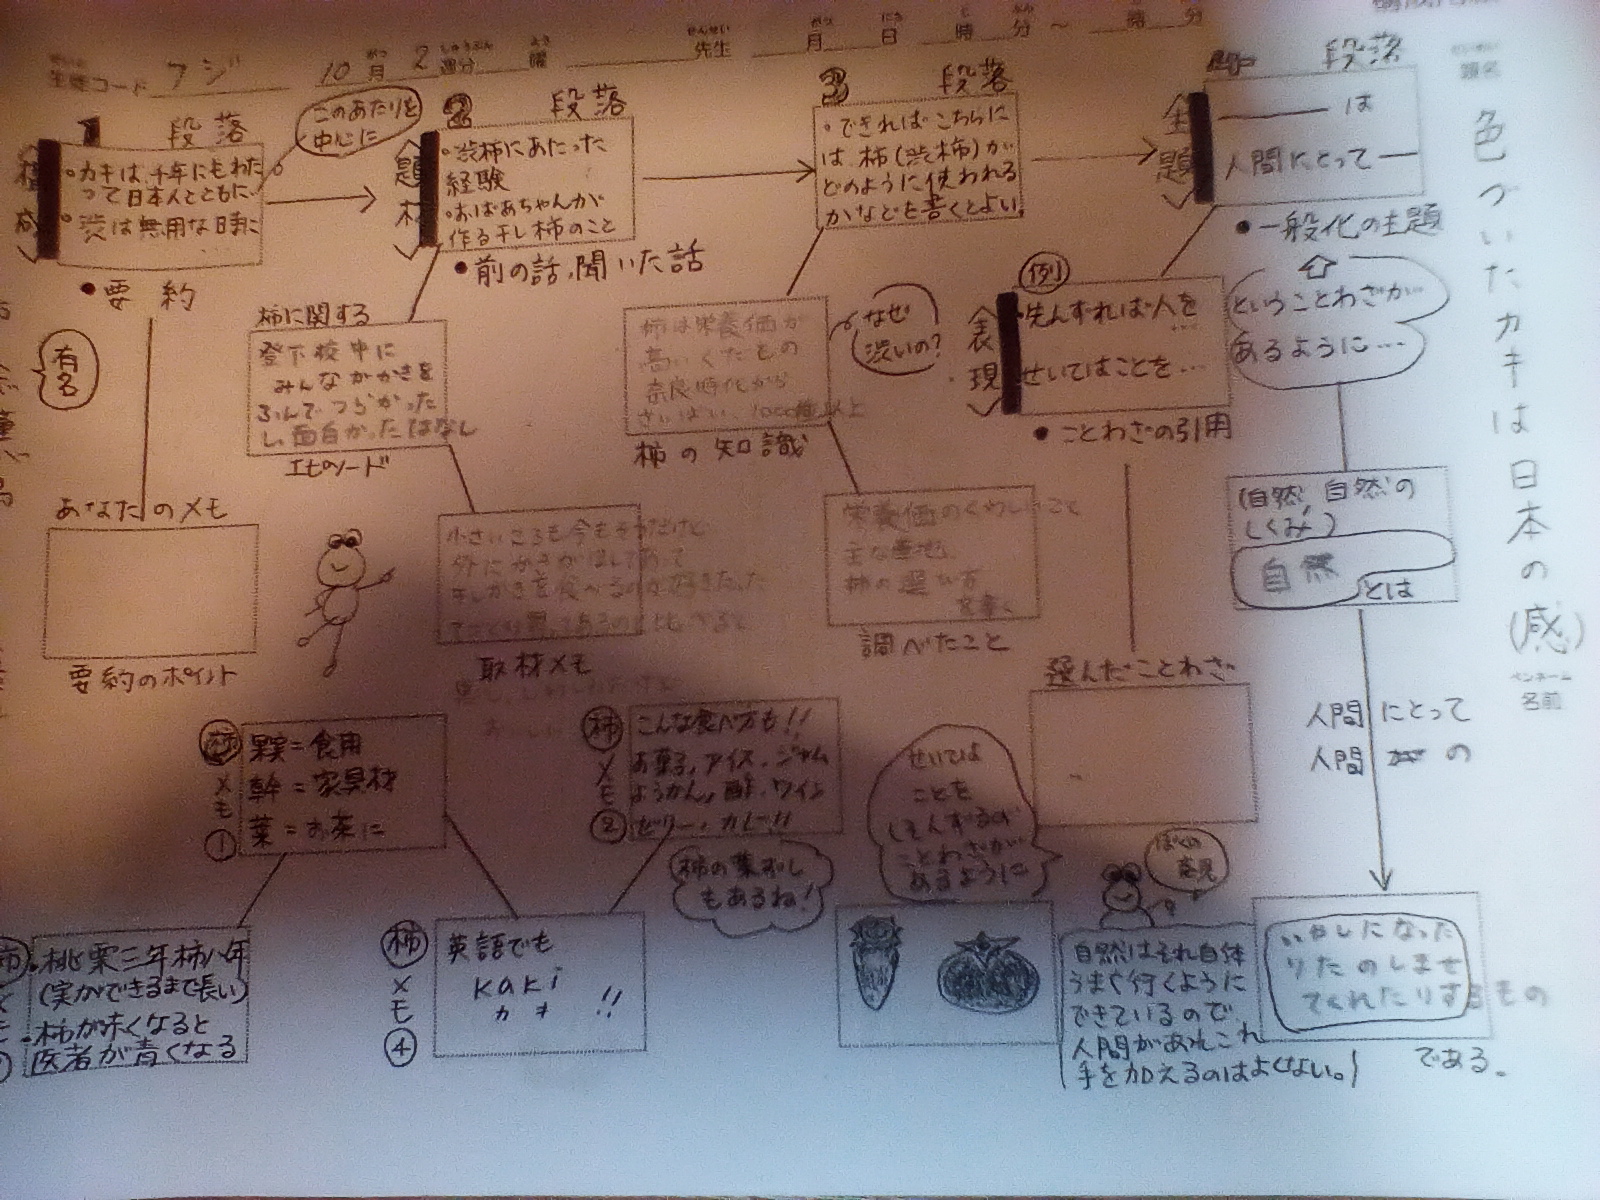 生徒コード アジ 10月 2週分 曜 先生 月 日 時 分 ～ 時 分
題名
色づいたカキは日本の(感)
ペンネーム
名前
1 段落
・カキは、千年にもわた
って日本人とともに
・渋は無用な時に
…
●要約
このあたりを
中心に
有名
あなたのメモ
要約のポイント
2 段落
題材
・渋柿にあたった
経験
・おばあちゃんが
作る干し柿のこと
●前の話、聞いた話
柿に関する
登下校中に
みんながかきを
ふんで つらかった
し、面白かったはなし
エピソード
小さいころも今もそうだけど
外にかきがほしてあって
干しかきを食べるのが好きだった
取材メモ
3 段落
・できればこちらに
は、柿(渋柿)が
どのように使われる
かなどを書くとよい。
柿は栄養価が
高いくだもの
奈良時代から
さいばい 1000種以上
柿の知識
なぜ
渋いの?
栄養価のくわしいこと
主な産地
柿の選び方
調べたこと
段落
主題
―― は
人間にとって―
●一般化の主題
表現
例
先んずれば人を
…
せいてはことを…
●ことわざの引用
ということわざが
あるように…
選んだことわざ
(自然、自然の
しくみ)
自然
とは
人間にとって
人間 の
柿メモ①
果実=食用
幹=家具材
葉=お茶に
柿メモ②
こんな食べ方も!!
お菓子、アイス・ジャム
ようかん、酢、ワイン
ゼリー、カレー!!
柿の葉ずし
もあるね!
・桃栗三年柿八年
(実ができるまで長い)
・柿が赤くなると
医者が青くなる
柿メモ④
英語でも
kaki
カキ !!
せいては
ことを
しそんずるの
ことわざが
あるように
ぼくの
意見
自然はそれ自体
うまく行くように
できているので、
人間があれこれ
手を加えるのはよくない。
いやしになった
りたのしませ
てくれたりするもの
である。